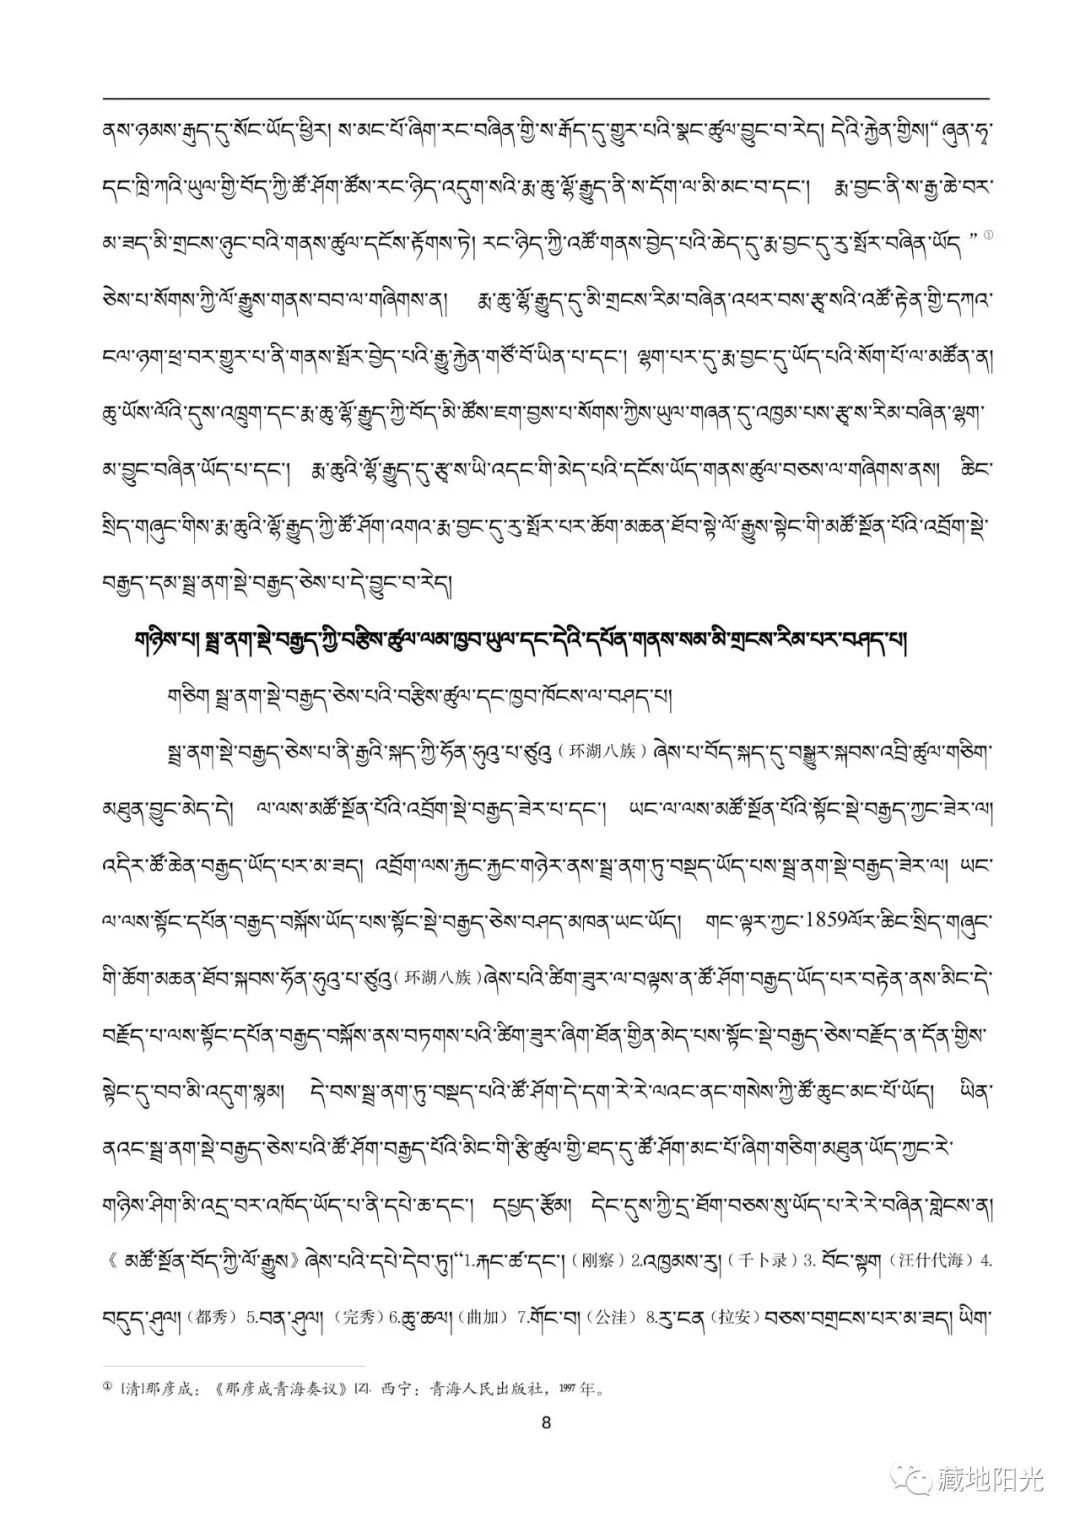 ནས་ཉམས་རྒུད་དུ་སོང་ཡོད་ཕྱིར། ས་མང་པོ་ཞིག་རང་བཞིན་གྱི་ས་རྒོད་དུ་གྱུར་པའི་སྣང་ཚུལ་བྱུང་བ་རེད། དེའི་རྐྱེན་གྱིས།“ཞུན་ཧྭ་
དང་ཁྲི་ཀའི་ཡུལ་གྱི་བོད་ཀྱི་ཚོ་ཤོག་ཚོས་རང་ཉིད་འདུག་སའི་རྨ་ཆུ་ལྷོ་རྒྱུད་ནི་ས་དོག་ལ་མི་མང་བ་དང་། རྨ་བྱང་ནི་ས་རྒྱ་ཆེ་བར་
མ་ཟད་མི་གྲངས་ཉུང་བའི་གནས་ཚུལ་དངོས་རྟོགས་ཏེ། རང་ཉིད་ཀྱི་འཚོ་གནས་བྱེད་པའི་ཆེད་དུ་རྨ་བྱང་དུ་རུ་སྤོར་བཞིན་ཡོད ”①
ཅེས་པ་སོགས་ཀྱི་ལོ་རྒྱུས་གནས་བབ་ལ་གཞིགས་ན། རྨ་ཆུ་ལྷོ་རྒྱུད་དུ་མི་གྲངས་རིམ་བཞིན་འཕར་བས་རྩྭ་སའི་འཚོ་རྟེན་གྱི་དཀའ་
ངལ་ཉག་ཕྲ་བར་གྱུར་པ་ནི་གནས་སྤོར་བྱེད་པའི་རྒྱུ་རྐྱེན་གཙོ་བོ་ཡིན་པ་དང་། ལྷག་པར་དུ་རྨ་བྱང་དུ་ཡོད་པའི་སོག་པོ་ལ་མཚོན་ན།
ཆུ་ཡོས་ལོའི་དུས་འཁྲུག་དང་རྨ་ཆུ་ལྷོ་རྒྱུད་ཀྱི་བོད་མི་ཚོས་ཇག་བྱས་པ་སོགས་ཀྱིས་ཡུལ་གཞན་དུ་འཁྱམ་པས་རྩྭ་ས་རིམ་བཞིན་ལྷག་
མ་བྱུང་བཞིན་ཡོད་པ་དང་། རྨ་ཆུའི་ལྷོ་རྒྱུད་དུ་རྩྭ་ས་ཡི་འདང་གི་མེད་པའི་དངོས་ཡོད་གནས་ཚུལ་བཅས་ལ་གཞིགས་ནས། ཆིང་
སྲིད་གཞུང་གིས་རྨ་ཆུའི་ལྷོ་རྒྱུད་ཀྱི་ཚོ་ཤོག་འགའ་རྨ་བྱང་དུ་རུ་སྤོར་པར་ཆོག་མཆན་ཐོབ་སྟེ་ལོ་རྒྱུས་སྟེང་གི་མཚོ་སྔོན་པོའི་འབྲོག་སྡེ་
བརྒྱད་དམ་སྦྲ་ནག་སྡེ་བརྒྱད་ཅེས་པ་དེ་བྱུང་བ་རེད།
གཉིས་པ། སྦྲ་ནག་སྡེ་བརྒྱད་ཀྱི་བརྩིས་ཚུལ་ལམ་ཁྱབ་ཡུལ་དང་དེའི་དཔོན་གནས་སམ་མི་གྲངས་རིམ་པར་བཤད་པ།
གཅིག སྦྲ་ནག་སྡེ་བརྒྱད་ཅེས་པའི་བརྩིས་ཚུལ་དང་ཁྱབ་ཁོངས་ལ་བཤད་པ།
སྦྲ་ནག་སྡེ་བརྒྱད་ཅེས་པ་ནི་རྒྱའི་སྐད་ཀྱི་ཧོན་ཧུའུ་པ་ཙུའུ（环湖八族）ཞེས་པ་བོད་སྐད་དུ་བསྒྱུར་སྐབས་འབྲི་ཚུལ་གཅིག་
མཐུན་བྱུང་མེད་དེ། ལ་ལས་མཚོ་སྔོན་པོའི་འབྲོག་སྡེ་བརྒྱད་ཟེར་པ་དང་། ཡང་ལ་ལས་མཚོ་སྔོན་པོའི་སྟོང་སྡེ་བརྒྱད་ཀྱང་ཟེར་ལ།
འདིར་ཚོ་ཆེན་བརྒྱད་ཡོད་པར་མ་ཟད། འབྲོག་ལས་རྐྱང་རྐྱང་གཉེར་ནས་སྦྲ་ནག་ཏུ་བསྡད་ཡོད་པས་སྦྲ་ནག་སྡེ་བརྒྱད་ཟེར་ལ། ཡང་
ལ་ལས་སྟོང་དཔོན་བརྒྱད་བསྐོས་ཡོད་པས་སྟོང་སྡེ་བརྒྱད་ཅེས་བཤད་མཁན་ཡང་ཡོད། གང་ལྟར་ཀྱང་1859ལོར་ཆིང་སྲིད་གཞུང་
གི་ཆོག་མཆན་ཐོབ་སྐབས་ཧོན་ཧུའུ་པ་ཙུའུ(环湖八族)ཞེས་པའི་ཚིག་ཟུར་ལ་བལྟས་ན་ཚོ་ཤོག་བརྒྱད་ཡོད་པར་བརྟེན་ནས་མིང་དེ་
བརྗོད་པ་ལས་སྟོང་དཔོན་བརྒྱད་བསྐོས་ནས་བཏགས་པའི་ཚིག་ཟུར་ཞིག་ཐོན་གྱིན་མེད་པས་སྟོང་སྡེ་བརྒྱད་ཅེས་བརྗོད་ན་དོན་གྱིས་
སྟེང་དུ་བབ་མི་འདུག་སྙམ། དེ་བས་སྦྲ་ནག་ཏུ་བསྡད་པའི་ཚོ་ཤོག་དེ་དག་རེ་རེ་ལའང་ནང་གསེས་ཀྱི་ཚོ་ཆུང་མང་པོ་ཡོད། ཡིན་
ནའང་སྦྲ་ནག་སྡེ་བརྒྱད་ཅེས་པའི་ཚོ་ཤོག་བརྒྱད་པོའི་མིང་གི་རྩི་ཚུལ་གྱི་ཐད་དུ་ཚོ་ཤོག་མང་པོ་ཞིག་གཅིག་མཐུན་ཡོད་ཀྱང་རེ་
གཉིས་ཤིག་མི་འདྲ་བར་འཁོད་ཡོད་པ་ནི་དཔེ་ཆ་དང་། དཔྱད་རྩོམ། དེང་དུས་ཀྱི་དྲ་ཐོག་བཅས་སུ་ཡོད་པ་རེ་རེ་བཞིན་གླེངས་ན།
《 མཚོ་སྔོན་བོད་ཀྱི་ལོ་རྒྱུས》ཞེས་པའི་དཔེ་དེབ་ཏུ།“1.རྐང་ཚ་དང་།（刚察）2.འཁྱམས་རུ།（千卜录）3. བོང་སྟག（汪什代海）4.
བདུད་ཤུལ།（都秀）5.བན་ཤུལ།（完秀）6.ཆུ་ཚལ།（曲加）7.གོང་བ།（公洼）8.རུ་ངན（拉安）བཅས་བགྲངས་པར་མ་ཟད། ཡིག་
① [清]那彦成：《那彦成青海奏议》[Z]. 西宁：青海人民出版社，1997 年。
8
藏地阳光